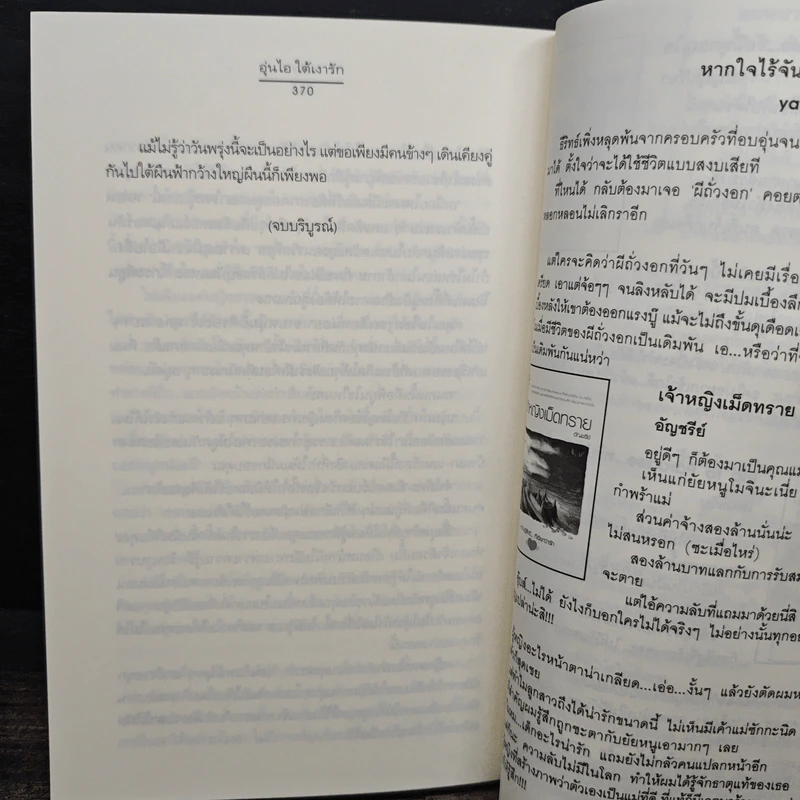 อุ่นไอ ใต้เงารัก
370
แม้ไม่รู้ว่าวันพรุ่งนี้จะเป็นอย่างไร แต่ขอเพียงมีคนข้างๆ เดินเคียงคู่
กันไปใต้ผืนฟ้ากว้างใหญ่ผืนนี้ก็เพียงพอ
(จบบริบูรณ์)
หากใจไร้จัน
ya
ธีริทธ์เพิ่งหลุดพ้นจากครอบครัวที่อบอุ่นจน
มาได้ ตั้งใจว่าจะได้ใช้ชีวิตแบบสงบเสียที
ที่ไหนได้ กลับต้องมาเจอ 'ผีถั่วงอก' คอยต
หลอกหลอนไม่เลิกราอีก
แต่ใครจะคิดว่าผีถั่วงอกที่วันๆ ไม่เคยมีเรื่อ
เครียด เอาแต่จ้อๆๆ จนลิงหลับได้ จะมีปมเบื้องลึก
เบื้องหลังให้เขาต้องออกแรงบู๊ แม้จะไม่ถึงขั้นดุเดือดเ
มื่อมีชีวิตของผีถั่วงอกเป็นเดิมพัน เอ...หรือว่าที่
เป็นเดิมพันกันแน่หว่า
หญิงเม็ดทราย
อัญชรีย์
เจ้าหญิงเม็ดทราย
อัญชรีย์
อยู่ดีๆ ก็ต้องมาเป็นคุณแม่
เห็นแก่ยัยหนูโมจินะเนี่ย
กำพร้าแม่
ส่วนค่าจ้างสองล้านนั่นน่ะ
ไม่สนหรอก (ซะเมื่อไหร่)
สองล้านบาทแลกกับการรับสม
จะตาย
แต่ไอ้ความลับที่แถมมาด้วยนี่สิ
ไม่ได้ ยังไงก็บอกใครไม่ได้จริงๆ ไม่อย่างนั้นทุกอย
เปล่าน่ะสิ!!!
ผู้หญิงอะไรหน้าตาน่าเกลียด...เอ่อ...งั้นๆ แล้วยังตัดผมห
ที่สุดเชย
แต่ทำไมลูกสาวถึงได้น่ารักขนาดนี้ ไม่เห็นมีเค้าแม่ซักกะนิด
สำคัญผมรู้สึกถูกชะตากับยัยหนูเอามากๆ เลย
เด็กอะไรน่ารัก แถมยังไม่กลัวคนแปลกหน้าอีก
ความลับไม่มีในโลก ทำให้ผมได้รู้จักธาตุแท้ของเธอ
ที่สร้างภาพว่าตัวเองเป็นแม่ที่ดี